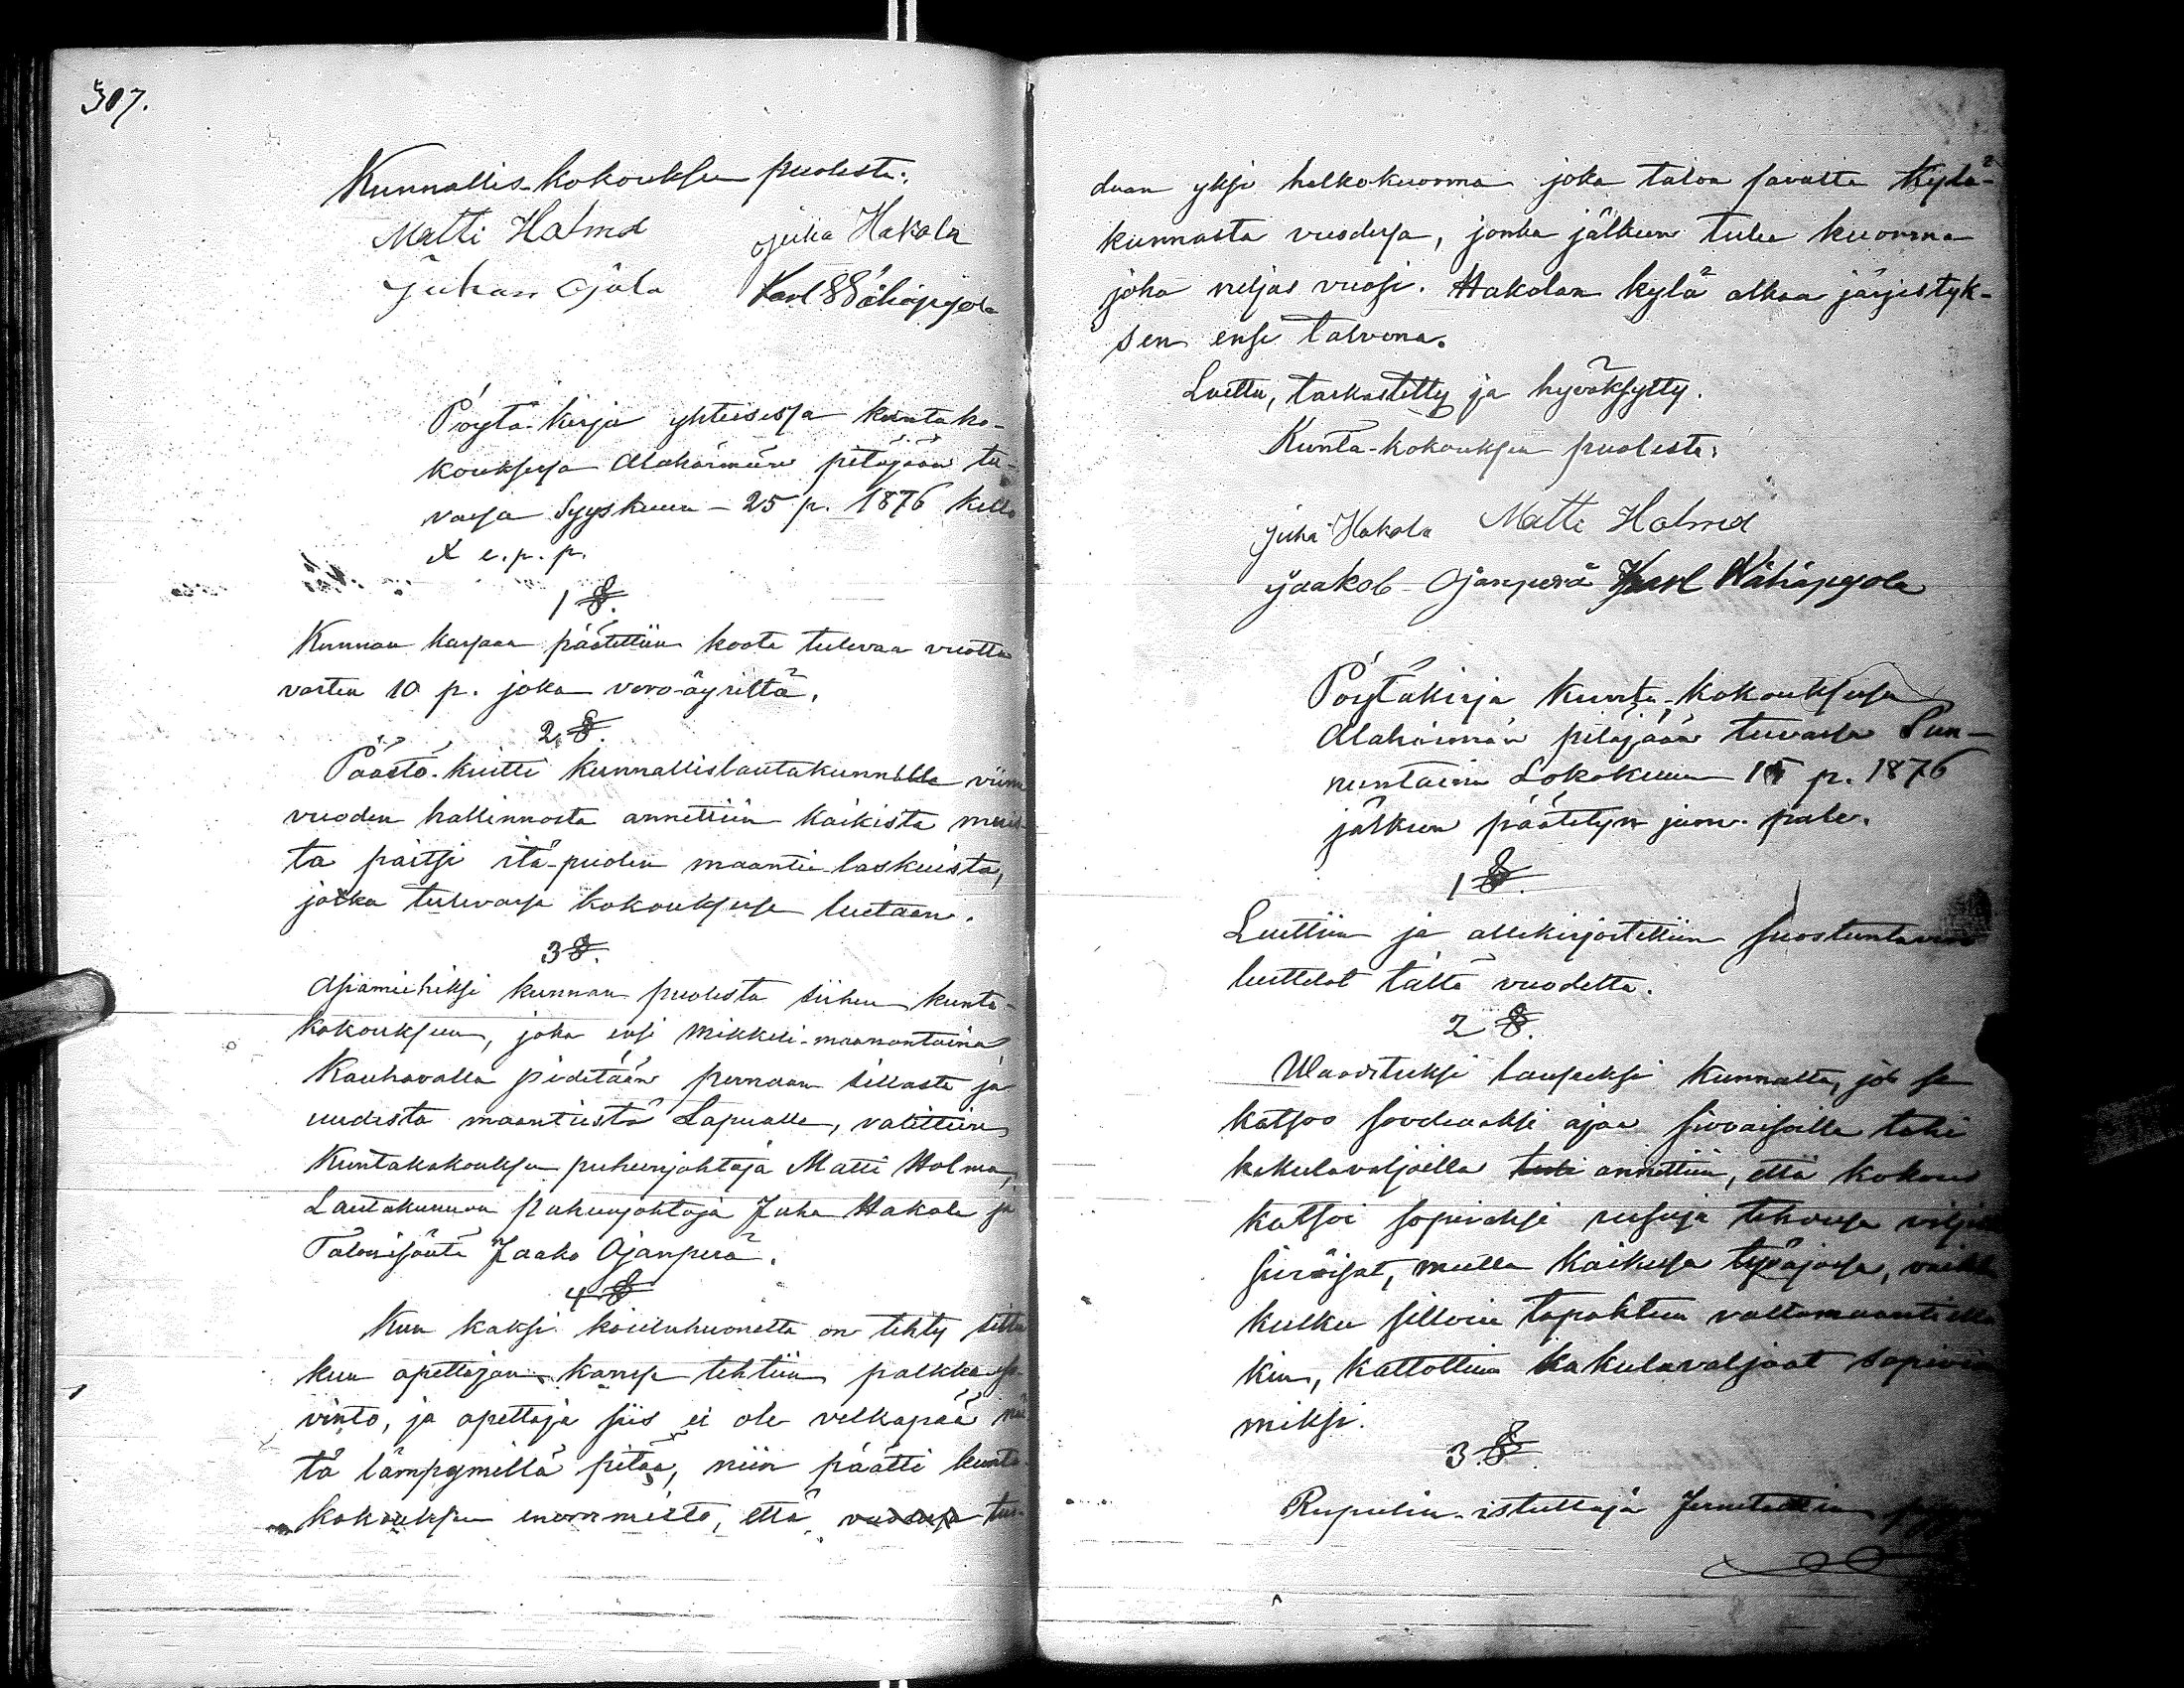 307.
Kunnallis-kokouksen puolesta:
Matti Holma Juha Hakala
Juhan Ojala Karl Wähäpgola
Pöytä-kirja yhteisessa kuntako-
kouksessa Alahärmän pitäjään tu-
vassa Syyskuun 25 p. 1876 kello
X e.p.p.
1 §.
Kunnan kassaan päätettiin koota tulevaa vuotta
varten 10 p. joka vero-äyriltä.
2 §.
Päästö-kuitti kunnallislautakunnalle viime
vuoden hallinnosta annettiin kaikista muis-
ta paitsi itä-puolen maantie-laskuista,
jotka tulevassa kokouksessa luetaan.
3 §.
Asiamiehiksi kunnan puolesta siihen kunta-
kokoukseen, joka ensi Mikkeli-maanantaina
Kauhavalla pidetään Pernaan sillasta ja
uudesta maantiestä Lapualle, valittiin
Kuntakokouksen puheenjohtaja Matti Holma,
Lautakunnan Puheenjohtaja Juha Hakala ja
Talonisäntä Jaako Ojanperä.
4 §
Kun kaksi kouluhuonetta on tehty sitte
kun opettajan kanssa tehtiin palkka-so-
vinto, ja opettaja siis ei ole velkapää nii-
tä lämpymillä pitää, niin päätti kunta-
kokouksen enemmistö, että vuodessa tuo-
daan yksi halkokuorma joka taloa savulta Kylä-
kunnasta vuodessa, jonka jälkeen tulee kuorma
joka neljäs vuosi. Hakolan kylä alkaa järjestyk-
sen ensi talvena.
Luettu, tarkastettu ja hyväksytty.
Kunta-kokouksen puolesta:
Juha Hakala Matti Holma
Jaakob Ojanperä Karl Wähäpgola
Pöytäkirja Kunta-kokouksessa
Alahärmän pitäjään tuvassa Sun-
nuntaina Lokakuun 15 p. 1876
jälkeen päätetyn jum. palv.
1 §.
Luettiin ja allekirjoitettiin suostuntavero
luettelot tältä vuodelta.
2 §.
Waadituksi lauseeksi Kunnalta, jos se
katsoo soveliaaksi ajaa sivoaisoilla tahi
kakulavaljailla tuli annettiin, että kokous
katsoi sopivaksi reissuja tehdessä
siväisat, mutta kaikessa työajossa, vaikka
kulku silloin tapahtuu valtamaantiellä
kin, kattottiin kakulavaljaat sopivim
miksi.
3 §.
Rupulin-istuttaja